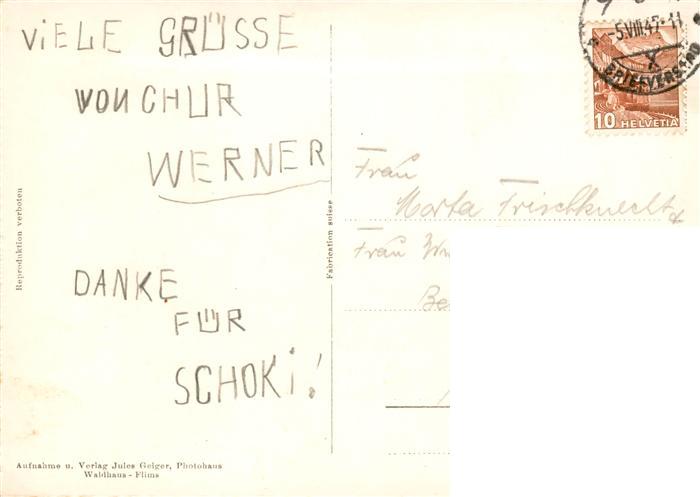 ViELE GRÜSSE
VON CHUR
WERNER
DANKE
FÜR
SCHOKi!
Reproduktion verboten
Fabrication suisse
Aufnahme u. Verlag Jules Geiger, Photohaus
Waldhaus - Flims
-5.VIII.47.-11
X
BRIEFVERSAND
10 HELVETIA
Frau
Marta Frischknecht
Frau